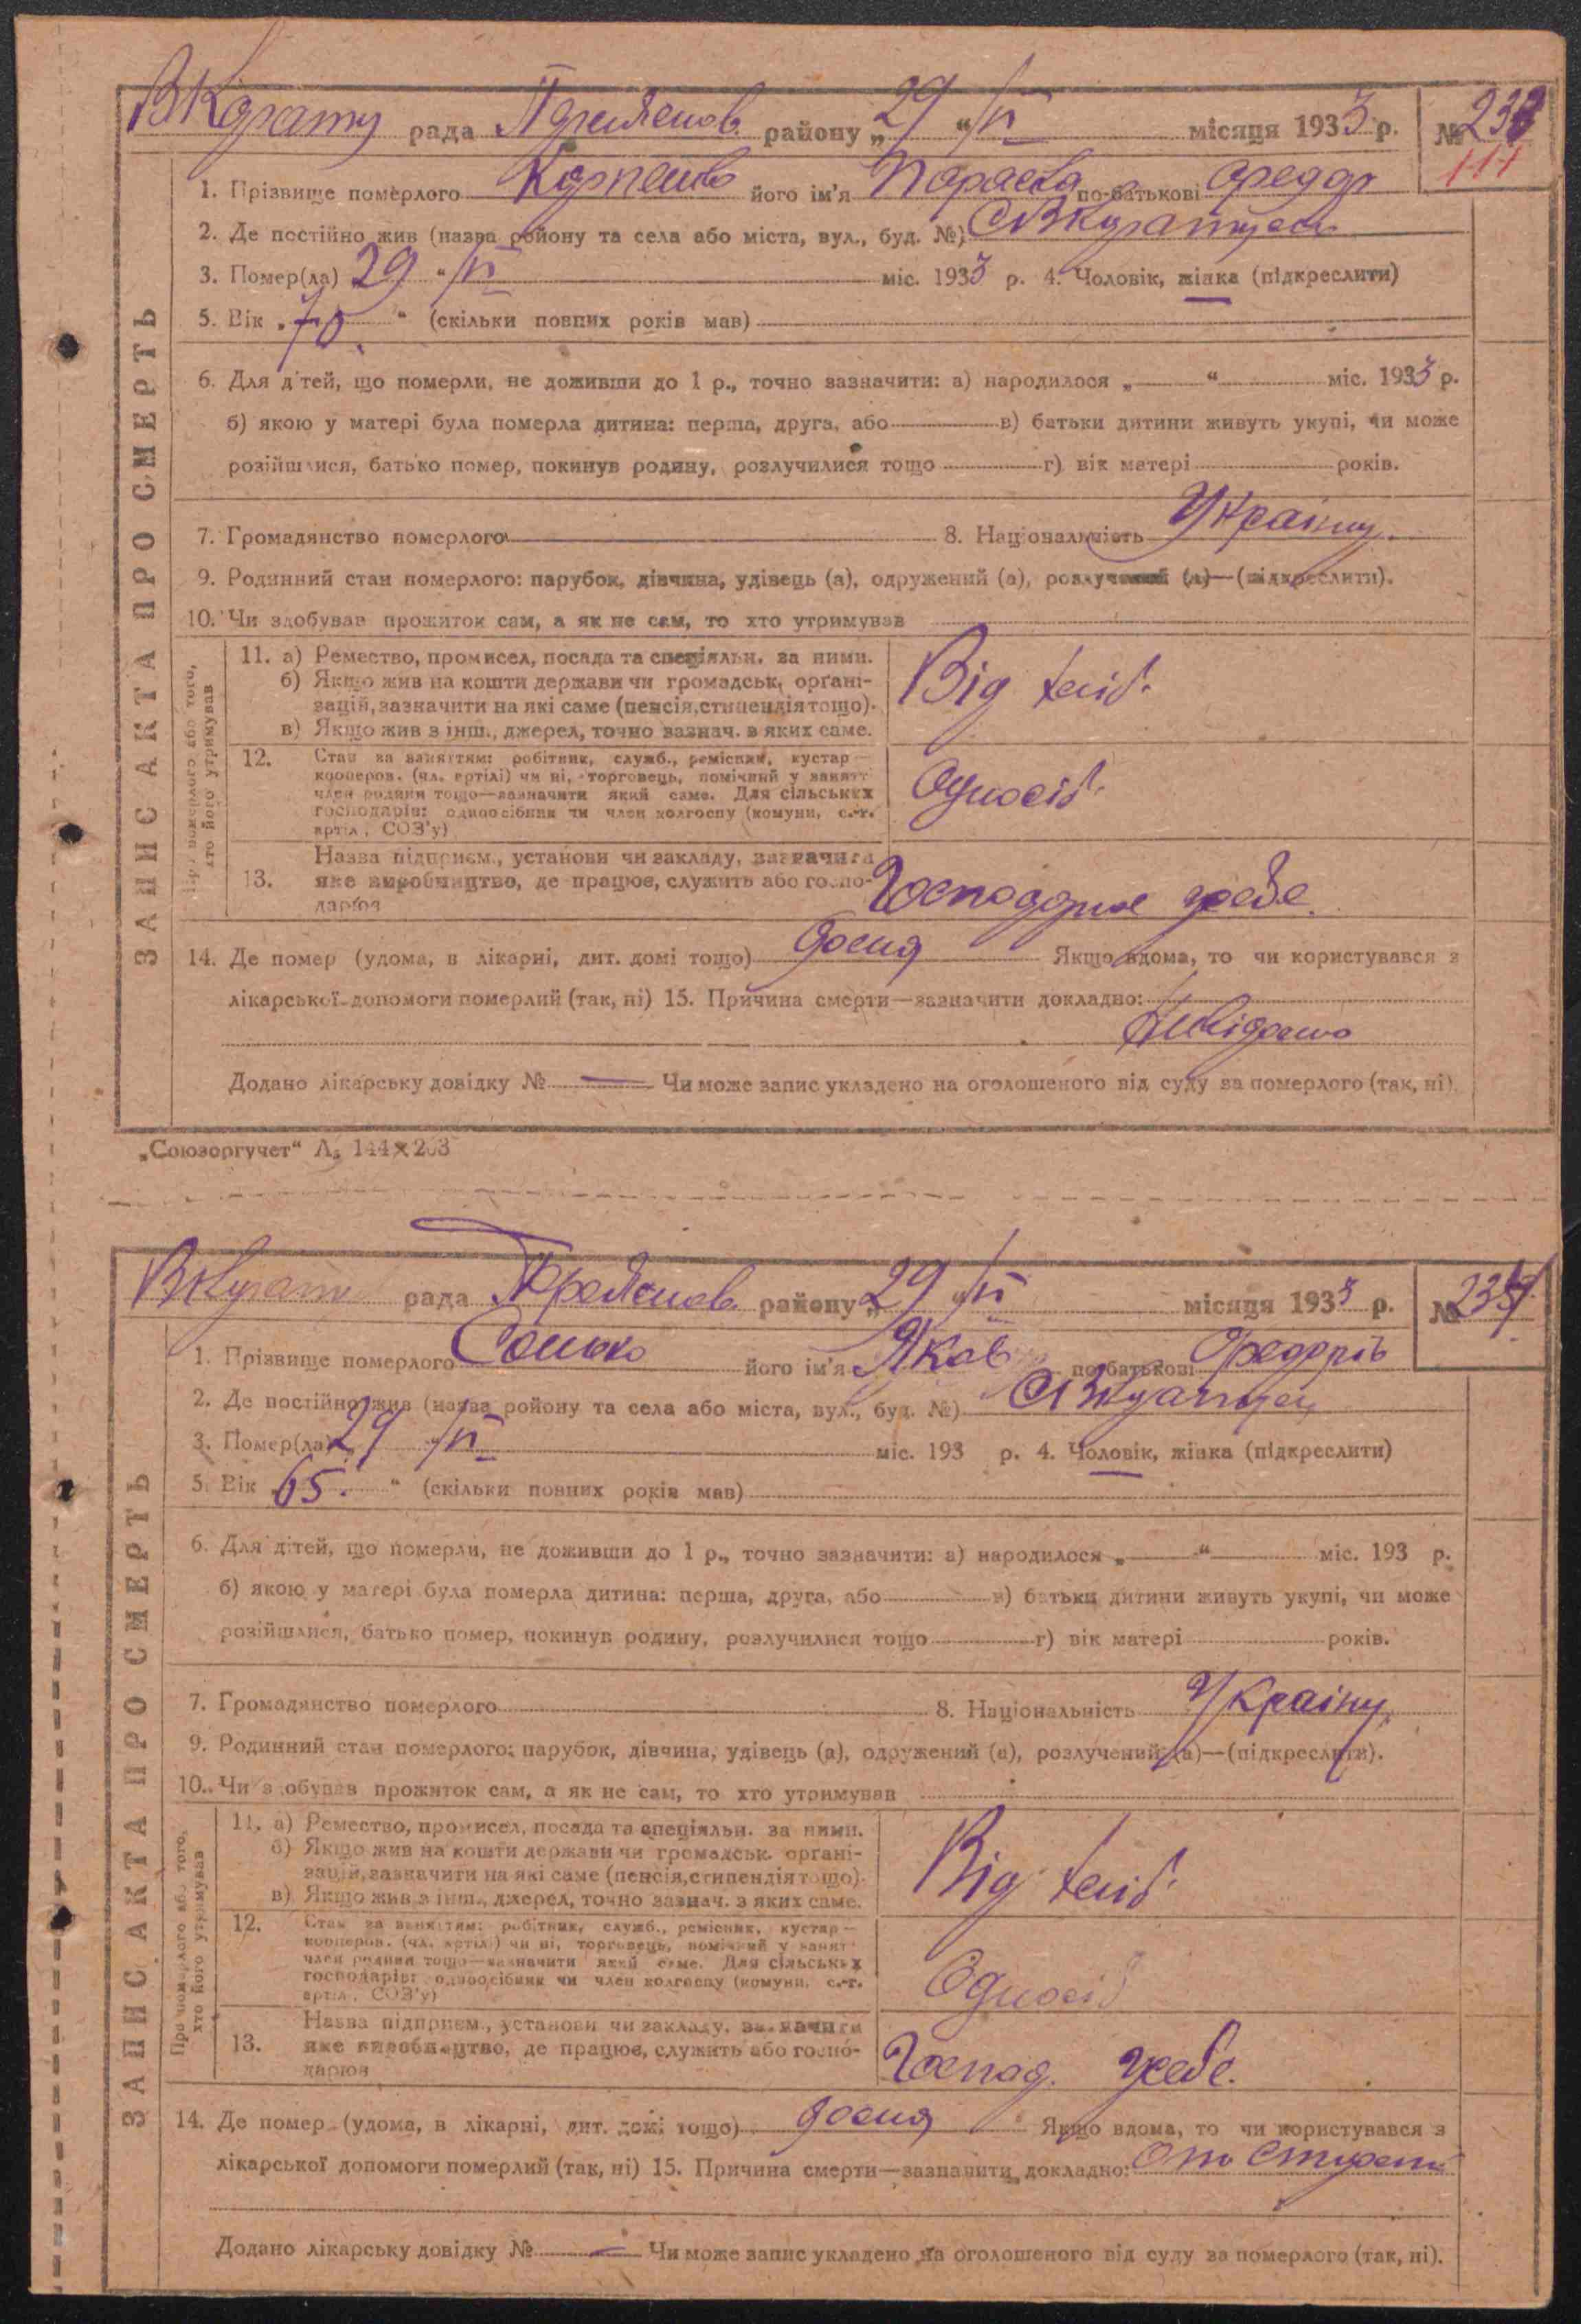 ЗАПИС АКТА ПРО СМЕРТЬ
рада району „29“ VI місяця 1933 р. № 233
111
1. Прізвище померлого його ім'я Параска по-батькові Федор
2. Де постійно жив (назва ройону та села або міста, вул., буд. №)
3. Помер(ла) 29 “ VI міс. 1933 р. 4. Чоловік, жінка (підкреслити)
5. Вік „70.“ (скільки повних років мав)
6. Для дітей, що померли, не доживши до 1 р., точно зазначити: а) народилося „ “ міс. 1933 р.
б) якою у матері була померла дитина: перша, друга, або в) батьки дитини живуть укупі, чи може
розійшлися, батько помер, покинув родину, розлучилися тощо г) вік матері років.
7. Громадянство померлого 8. Національність Україну.
9. Родинний стан померлого: парубок, дівчина, удівець (а), одружений (а), розлучений (а)—(підкреслити).
10. Чи здобував прожиток сам, а як не сам, то хто утримував
Про померлого або того, хто його утримував
11. а) Ремество, промисел, посада та спеціяльн. за ними.
б) Якщо жив на кошти держави чи громадськ. органі-
зацій, зазначити на які саме (пенсія, стипендія тощо).
в) Якщо жив з інш., джерел, точно зазнач. з яких саме.
Від
12. Стан за заняттям: робітник, служб., ремісник, кустар—
кооперов. (чл. артілі) чи ні, торговець, помічний у занятт
член родини тощо—зазначити який саме. Для сільських
господарів: одноосібник чи член колгоспу (комуни, с.-г.
артіл., СОЗ'у)
Одноосіб.
13. Назва підприєм., установи чи закладу, зазначити
яке виробництво, де працює, служить або госпо-
дарює
14. Де помер (удома, в лікарні, дит. домі тощо) дома Якщо вдома, то чи користувався з
лікарської допомоги померлий (так, ні) 15. Причина смерти—зазначити докладно:
Невідомо
Додано лікарську довідку № — Чи може запис укладено на оголошеного від суду за померлого (так, ні).
„Союзоргучет“ А₅ 144×203
ЗАПИС АКТА ПРО СМЕРТЬ
рада району „29 “ VI місяця 1933 р. № 234
1. Прізвище померлого його ім'я Яков по-батькові Федорів
2. Де постійно жив (назва ройону та села або міста, вул., буд. №)
3. Помер(ла) 29 “ VI міс. 193 р. 4. Чоловік, жінка (підкреслити)
5. Вік 65. “ (скільки повних років мав)
6. Для дітей, що померли, не доживши до 1 р., точно зазначити: а) народилося „ “ міс. 193 р.
б) якою у матері була померла дитина: перша, друга, або в) батьки дитини живуть укупі, чи може
розійшлися, батько помер, покинув родину, розлучилися тощо г) вік матері років.
7. Громадянство померлого 8. Національність Україну.
9. Родинний стан померлого: парубок, дівчина, удівець (а), одружений (а), розлучений (а)—(підкреслити).
10. Чи здобував прожиток сам, а як не сам, то хто утримував
Про померлого або того, хто його утримував
11. а) Ремество, промисел, посада та спеціяльн. за ними.
б) Якщо жив на кошти держави чи громадськ. органі-
зацій, зазначити на які саме (пенсія, стипендія тощо).
в) Якщо жив з інш., джерел, точно зазнач. з яких саме.
Від
12. Стан за заняттям: робітник, служб., ремісник, кустар—
кооперов. (чл. артілі) чи ні, торговець, помічний у занятт
член родини тощо—зазначити який саме. Для сільських
господарів: одноосібник чи член колгоспу (комуни, с.-г.
артіл., СОЗ'у)
Одноосіб
13. Назва підприєм., установи чи закладу, зазначити
яке виробництво, де працює, служить або госпо-
дарює
Господ.
14. Де помер (удома, в лікарні, дит. домі тощо) дома Якщо вдома, то чи користувався з
лікарської допомоги померлий (так, ні) 15. Причина смерти—зазначити докладно:
Додано лікарську довідку № — Чи може запис укладено на оголошеного від суду за померлого (так, ні).